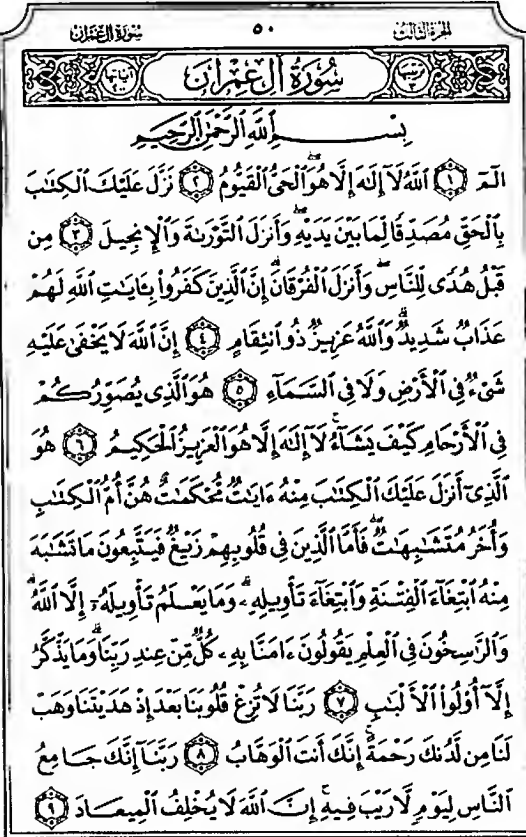 الجزء الثالث ٥٠ سورة آل عمران
ترتيبها ٣ سُورَةُ آلِ عِمْرَانَ آياتها ٢٠٠
بِسْمِ ٱللَّهِ ٱلرَّحْمَٰنِ ٱلرَّحِيمِ
الٓمٓ ١ ٱللَّهُ لَآ إِلَٰهَ إِلَّا هُوَ ٱلْحَىُّ ٱلْقَيُّومُ ٢ نَزَّلَ عَلَيْكَ ٱلْكِتَٰبَ
بِٱلْحَقِّ مُصَدِّقًا لِّمَا بَيْنَ يَدَيْهِ وَأَنزَلَ ٱلتَّوْرَىٰةَ وَٱلْإِنجِيلَ ٣ مِن
قَبْلُ هُدًى لِّلنَّاسِ وَأَنزَلَ ٱلْفُرْقَانَ ۗ إِنَّ ٱلَّذِينَ كَفَرُوا۟ بِـَٔايَٰتِ ٱللَّهِ لَهُمْ
عَذَابٌ شَدِيدٌ ۗ وَٱللَّهُ عَزِيزٌ ذُو ٱنتِقَامٍ ٤ إِنَّ ٱللَّهَ لَا يَخْفَىٰ عَلَيْهِ
شَىْءٌ فِى ٱلْأَرْضِ وَلَا فِى ٱلسَّمَآءِ ٥ هُوَ ٱلَّذِى يُصَوِّرُكُمْ
فِى ٱلْأَرْحَامِ كَيْفَ يَشَآءُ ۚ لَآ إِلَٰهَ إِلَّا هُوَ ٱلْعَزِيزُ ٱلْحَكِيمُ ٦ هُوَ
ٱلَّذِىٓ أَنزَلَ عَلَيْكَ ٱلْكِتَٰبَ مِنْهُ ءَايَٰتٌ مُّحْكَمَٰتٌ هُنَّ أُمُّ ٱلْكِتَٰبِ
وَأُخَرُ مُتَشَٰبِهَٰتٌ ۖ فَأَمَّا ٱلَّذِينَ فِى قُلُوبِهِمْ زَيْغٌ فَيَتَّبِعُونَ مَا تَشَٰبَهَ
مِنْهُ ٱبْتِغَآءَ ٱلْفِتْنَةِ وَٱبْتِغَآءَ تَأْوِيلِهِۦ ۗ وَمَا يَعْلَمُ تَأْوِيلَهُۥٓ إِلَّا ٱللَّهُ ۗ
وَٱلرَّٰسِخُونَ فِى ٱلْعِلْمِ يَقُولُونَ ءَامَنَّا بِهِۦ كُلٌّ مِّنْ عِندِ رَبِّنَا ۗ وَمَا يَذَّكَّرُ
إِلَّآ أُو۟لُوا۟ ٱلْأَلْبَٰبِ ٧ رَبَّنَا لَا تُزِغْ قُلُوبَنَا بَعْدَ إِذْ هَدَيْتَنَا وَهَبْ
لَنَا مِن لَّدُنكَ رَحْمَةً ۚ إِنَّكَ أَنتَ ٱلْوَهَّابُ ٨ رَبَّنَآ إِنَّكَ جَامِعُ
ٱلنَّاسِ لِيَوْمٍ لَّا رَيْبَ فِيهِ ۚ إِنَّ ٱللَّهَ لَا يُخْلِفُ ٱلْمِيعَادَ ٩